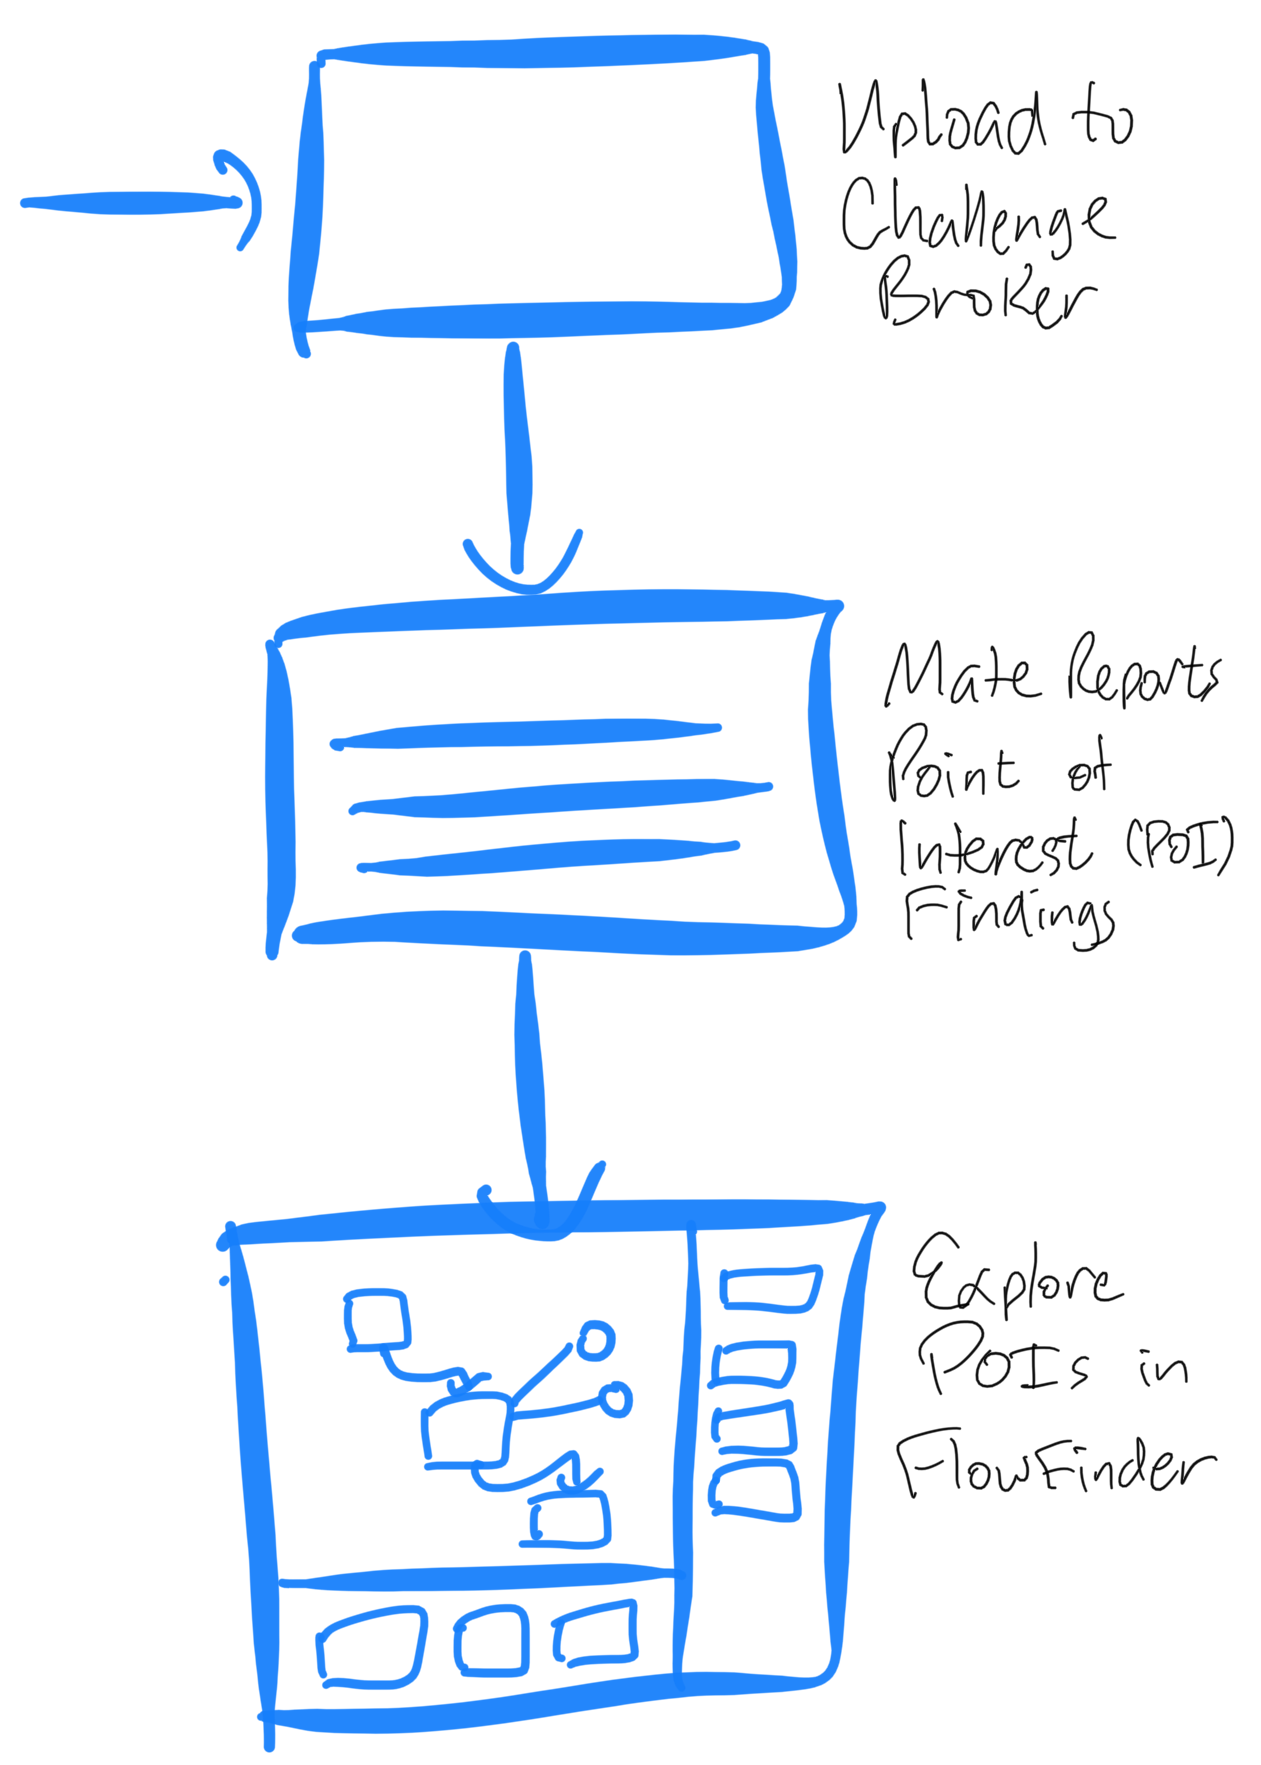 Upload to
Challenge
Broker
Mate Reports
Point of
Interest (POI)
Findings
Explore
POIs in
FlowFinder